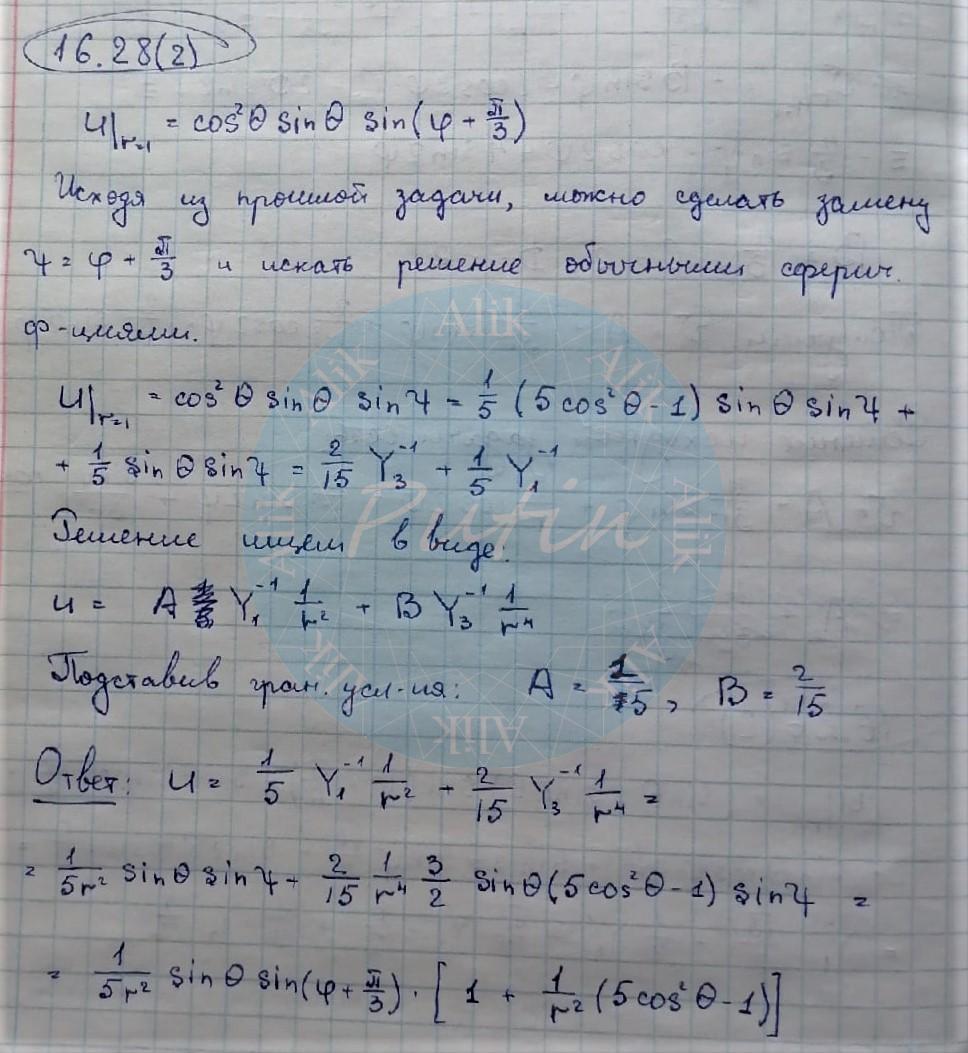 16.28(2)
u|_{r=1} = cos²θ sinθ sin(φ + π/3)
Исходя из прошлой задачи, можно сделать замену
ψ = φ + π/3 и искать решение обычными сферич.
ф-циями.
u|_{r=1} = cos²θ sinθ sinψ = 1/5 (5cos²θ-1) sinθ sinψ +
+ 1/5 sinθ sinψ = 2/15 Y₃⁻¹ + 1/5 Y₁⁻¹
Решение ищем в виде:
u = A Y₁⁻¹ 1/r² + B Y₃⁻¹ 1/r⁴
Подставив гран. усл-ия: A = 1/5, B = 2/15
Ответ: u = 1/5 Y₁⁻¹ 1/r² + 2/15 Y₃⁻¹ 1/r⁴ =
= 1/5r² sinθ sinψ + 2/15 1/r⁴ 3/2 sinθ(5cos²θ-1) sinψ =
= 1/5r² sinθ sin(φ + π/3) · [1 + 1/r² (5cos²θ-1)]
Alik
Alik
Alik
Alik
Alik
Alik
Alik
Alik
Putin